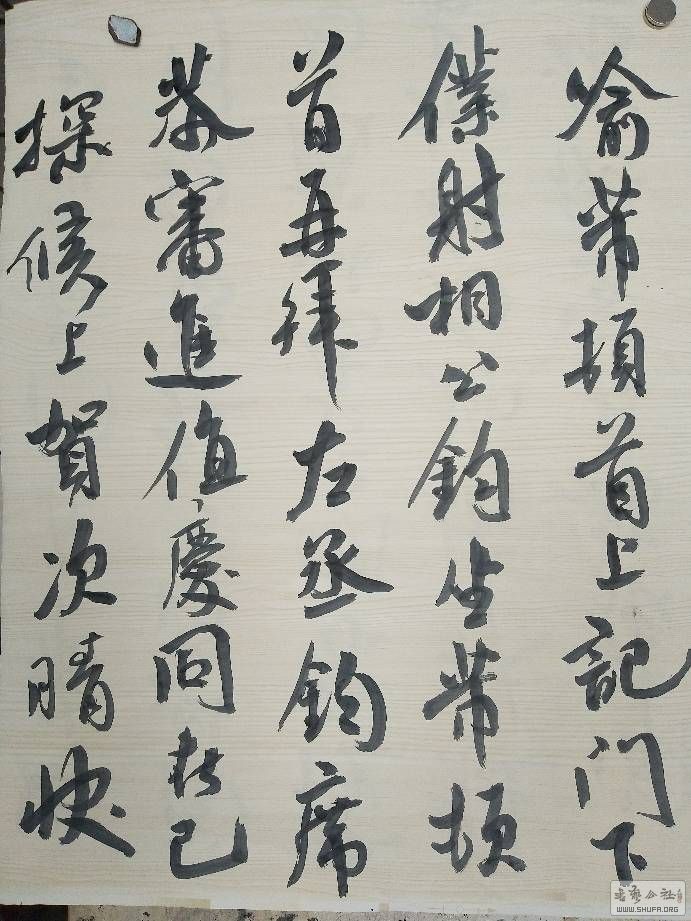 喻芾頓首上記门下
僕射相公鈞坐芾頓
首再拜左丞鈞席
恭審進值慶同於已
探候上賀次晴快
书艺公社
WWW.SHUFA.ORG